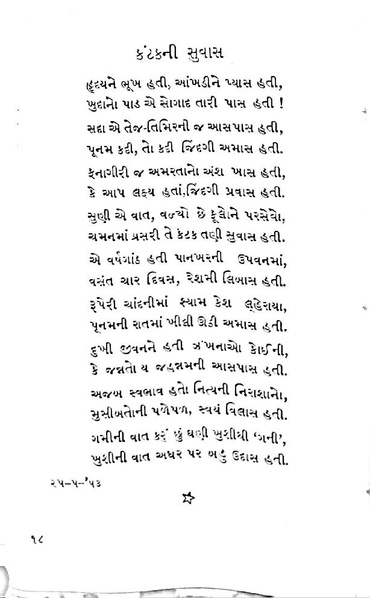 કંટકની સુવાસ
હૃદયને ભૂખ હતી, આંખડીને પ્યાસ હતી,
ખુદાનો પાડ એ સોગાદ તારી પાસ હતી !
સદા એ તેજ-તિમિરની જ આસપાસ હતી,
પૂનમ કદી, તો કદી જિંદગી અમાસ હતી.
ફનાગીરી જ અમરતાનો અંશ ખાસ હતી,
કે આપ લક્ષ્ય હતાં, જિંદગી પ્રવાસ હતી.
સુણી એ વાત, વળ્યો છે ફૂલોને પરસેવો,
ચમનમાં પ્રસરી તે કંટક તણી સુવાસ હતી.
એ વર્ષગાંઠ હતી પાનખરની ઉપવનમાં,
વસંત ચાર દિવસ, રેશમી લિબાસ હતી.
રૂપેરી ચાંદનીમાં શ્યામ કેશ લ્હેરાયા,
પૂનમની રાતમાં ખીલી ઊઠી અમાસ હતી.
દુખી જીવનને હતી ઝંખનાઓ કોઈની,
કે જન્નતો ય જહન્નમની આસપાસ હતી.
અજબ સ્વભાવ હતો નિત્યની નિરાશાનો,
મુસીબતોની પળેપળ, સ્વયં વિલાસ હતી.
ગમીની વાત કરું છું ઘણી ખુશીથી ‘ગની’,
ખુશીની વાત અધર પર બહુ ઉદાસ હતી.
૨૫-૫-’૫૩
૧૮